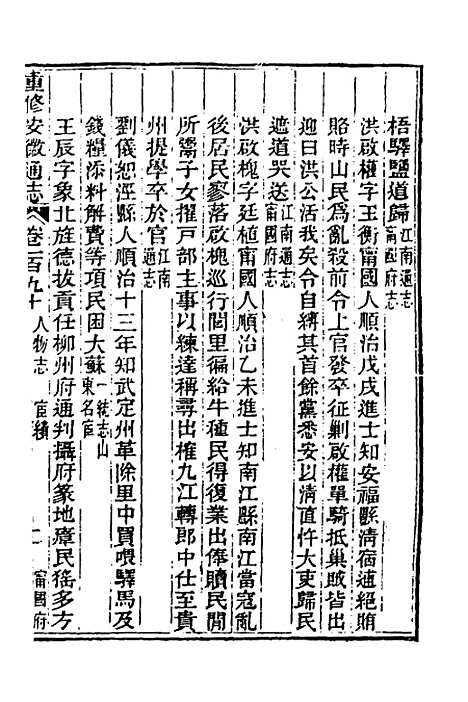 梧驛鹽道歸江南通志甯國府志
洪啟權字玉衡甯國人順治戊戌進士知安福縣清宿逋絕賄
賂時山民爲亂殺前令上官發卒征剿啟權單騎抵巢賊皆出
迎曰洪公活我矣令自縛其首餘黨悉安以清直忤大吏歸民
遮道哭送江南通志甯國府志
洪啟槐字廷植甯國人順治乙未進士知南江縣南江當寇亂
後居民寥落啟槐巡行閭里徧給牛種民得復業出俸贖民間
所鬻子女擢戶部主事以練達稱尋出榷九江轉郎中仕至貴
州提學卒於官江南通志
劉儀恕涇縣人順治十三年知武定州革除里中買喂驛馬及
錢糧添料解費等項民困大蘇一統志山東名宦
王辰字象北旌德拔貢任柳州府通判攝府篆地瘴民猺多方
重修安徽通志 卷一百九十 人物志 宦績 二 甯國府